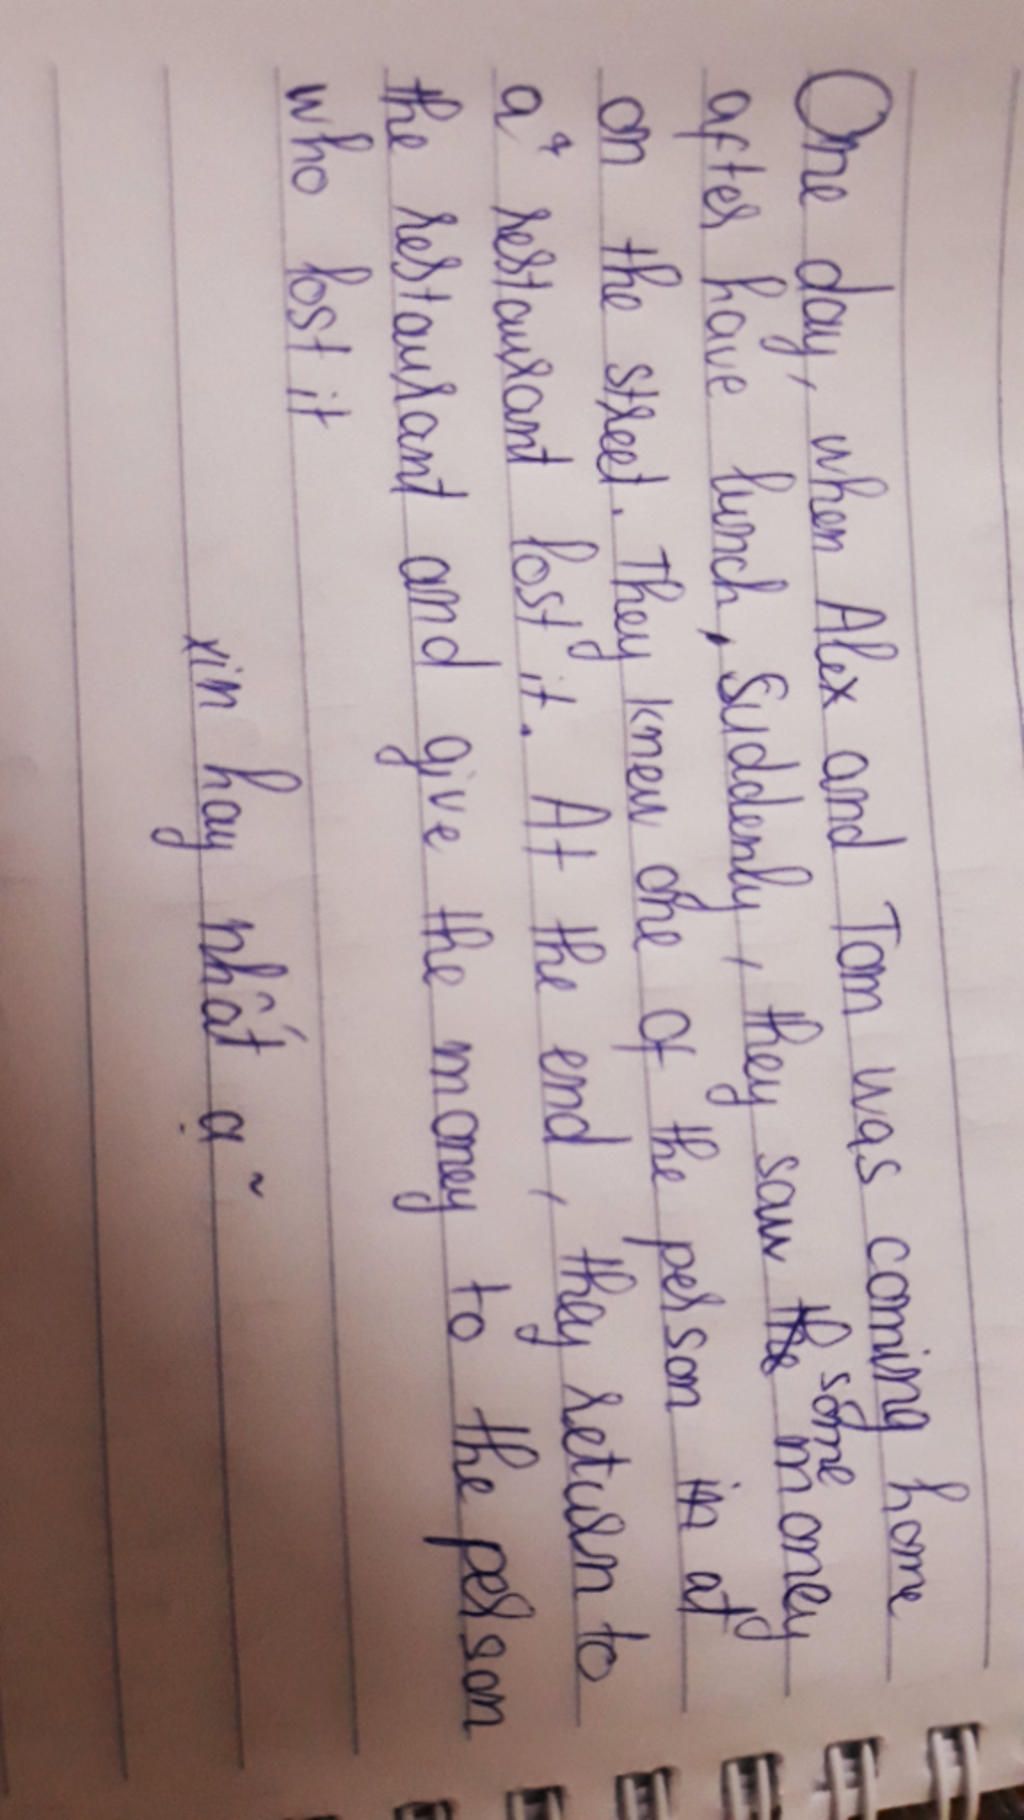 One day, when Alex and Tom was coming home
after have lunch, Suddenly, they saw the some money
on the street. They knew one of the person in at
a restaurant lost it. At the end, they return to
the restaurant and give the money to the person
who lost it
xin hay nhất ạ ~